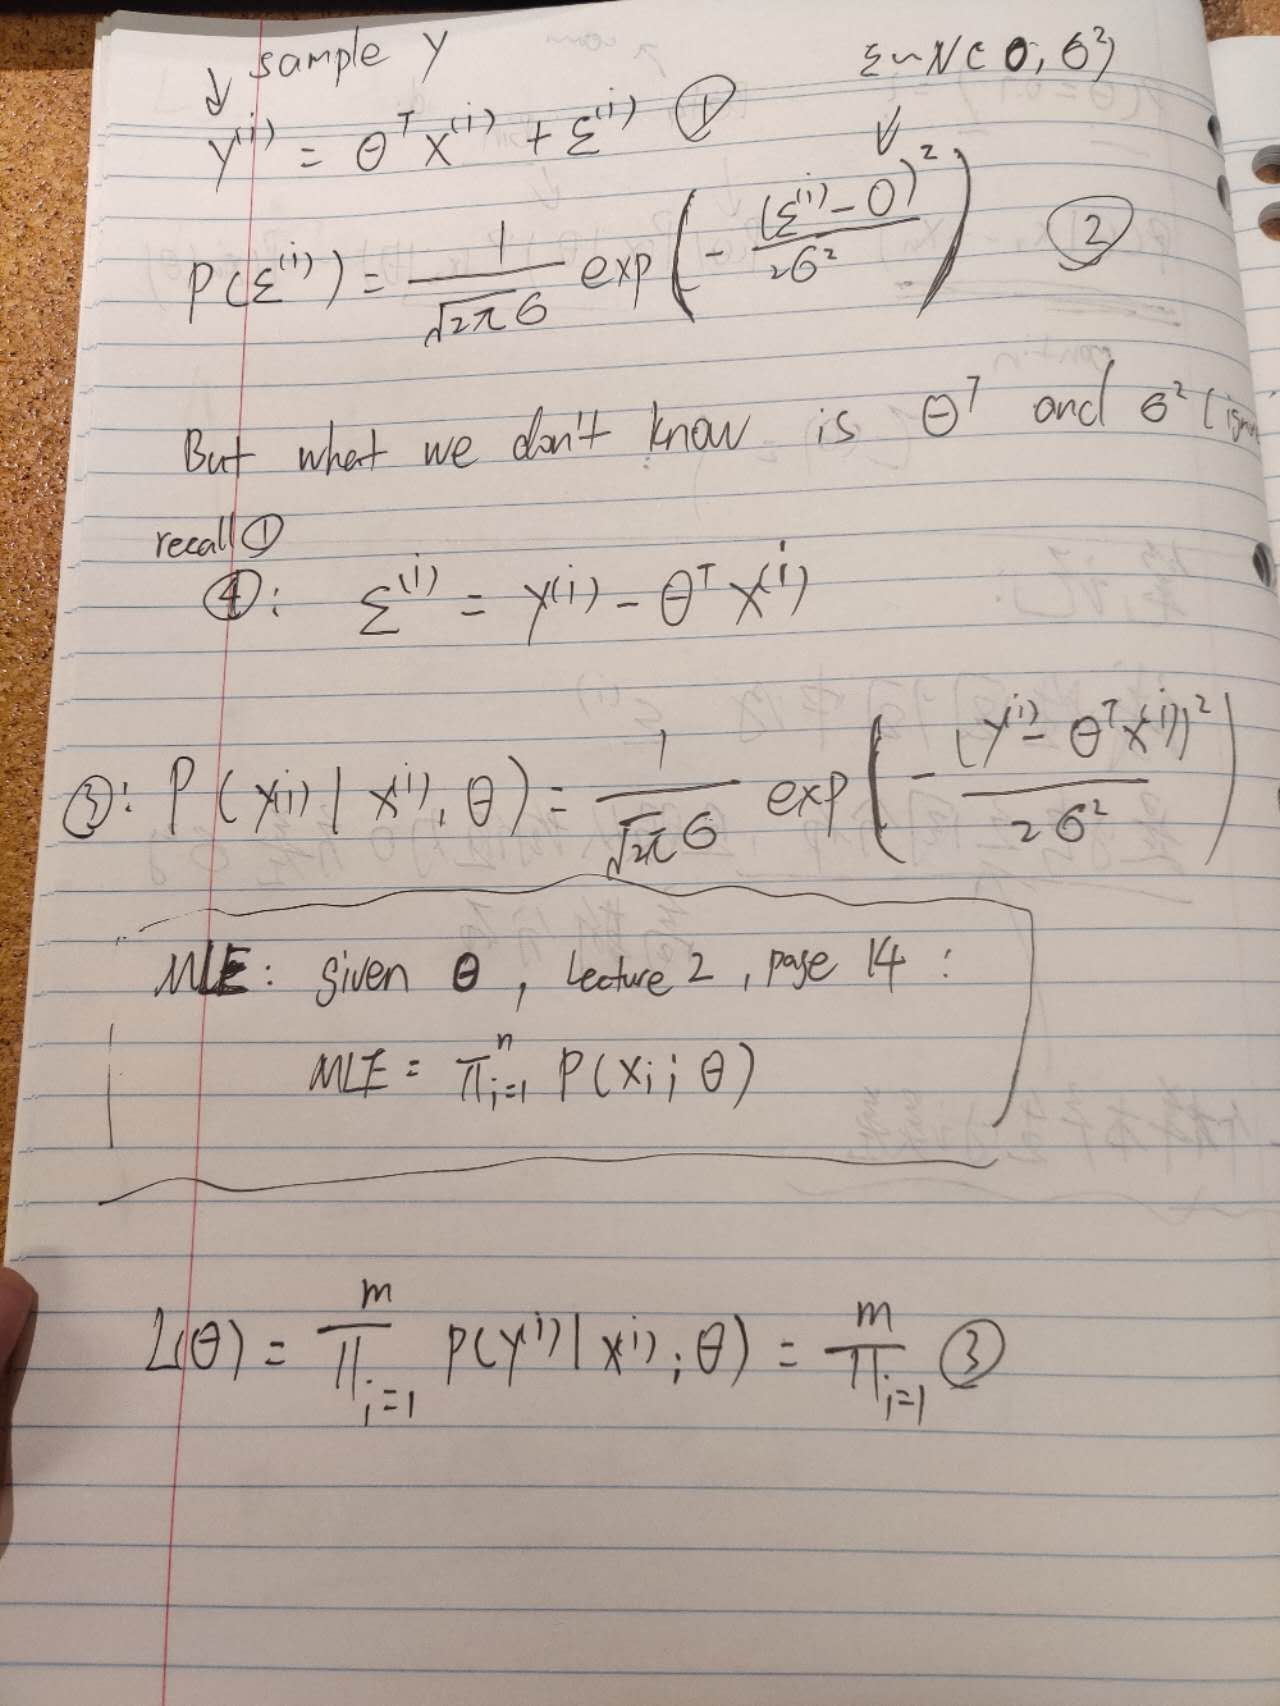 ↓ sample y
ε ~ N(0, σ²)
y⁽ⁱ⁾ = θᵀx⁽ⁱ⁾ + ε⁽ⁱ⁾ ① ↓
P(ε⁽ⁱ⁾) = 1/(√2π σ) exp(-(ε⁽ⁱ⁾-0)²/2σ²) ②
But what we don't know is θᵀ and σ² (
recall ①
④: ε⁽ⁱ⁾ = y⁽ⁱ⁾ - θᵀx⁽ⁱ⁾
③: P(y⁽ⁱ⁾ | x⁽ⁱ⁾, θ) = 1/(√2π σ) exp(-(y⁽ⁱ⁾ - θᵀx⁽ⁱ⁾)²/2σ²)
MLE: given θ, Lecture 2, page 14:
MLE = πᵢ₌₁ⁿ P(xᵢ; θ)
L(θ) = Πᵢ₌₁ᵐ P(y⁽ⁱ⁾ | x⁽ⁱ⁾; θ) = Πᵢ₌₁ᵐ ③